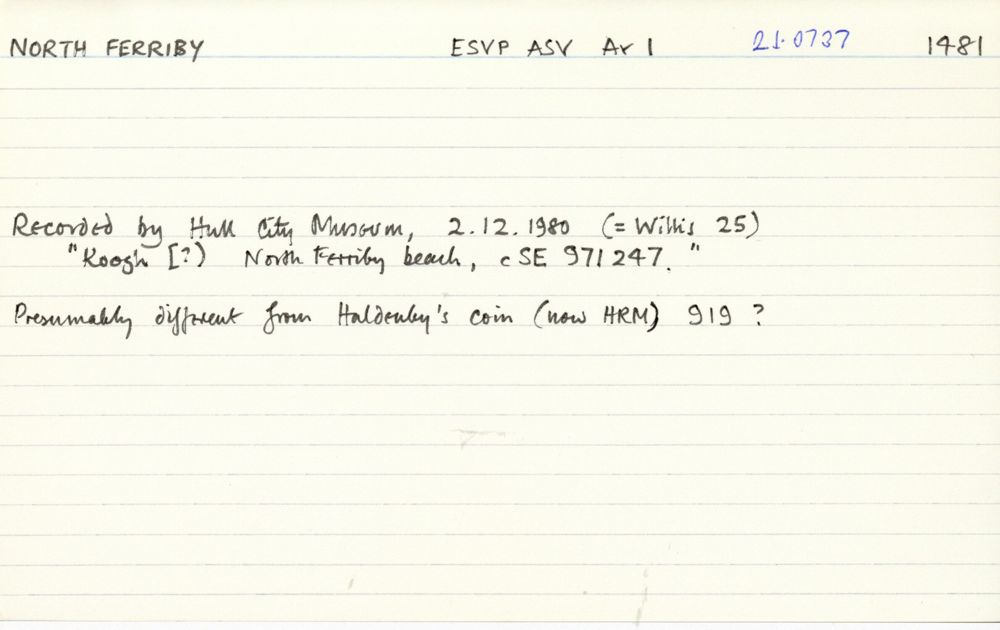 NORTH FERRIBY ESVP ASV Ar 1 21.0737 1481
Recorded by Hull City Museum, 2.12.1980 (= Willis 25)
"Koogh [?) North Ferriby beach, c SE 971 247."
Presumably different from Haldenby's coin (now HRM) 919 ?